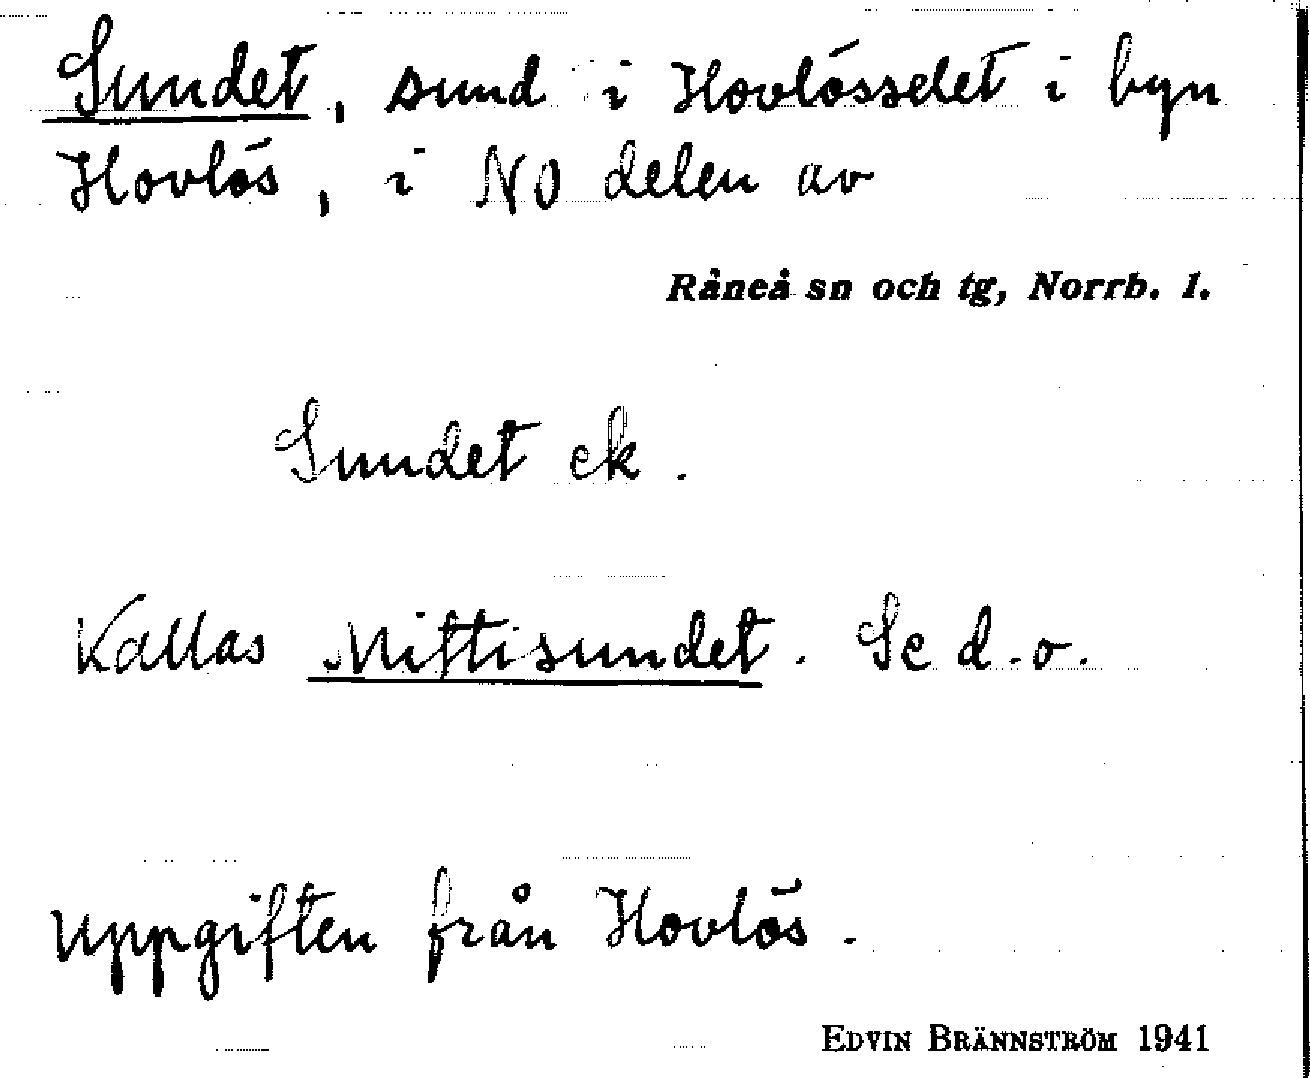 Sundet, sund i Hovlösselet i byn
Hovlös, i NO delen av
Råneå sn och tg, Norrb. l.
Sundet ek.
Kallas Niftisundet. Se d.o.
Uppgiften från Hovlös.
EDVIN BRÄNNSTRÖM 1941